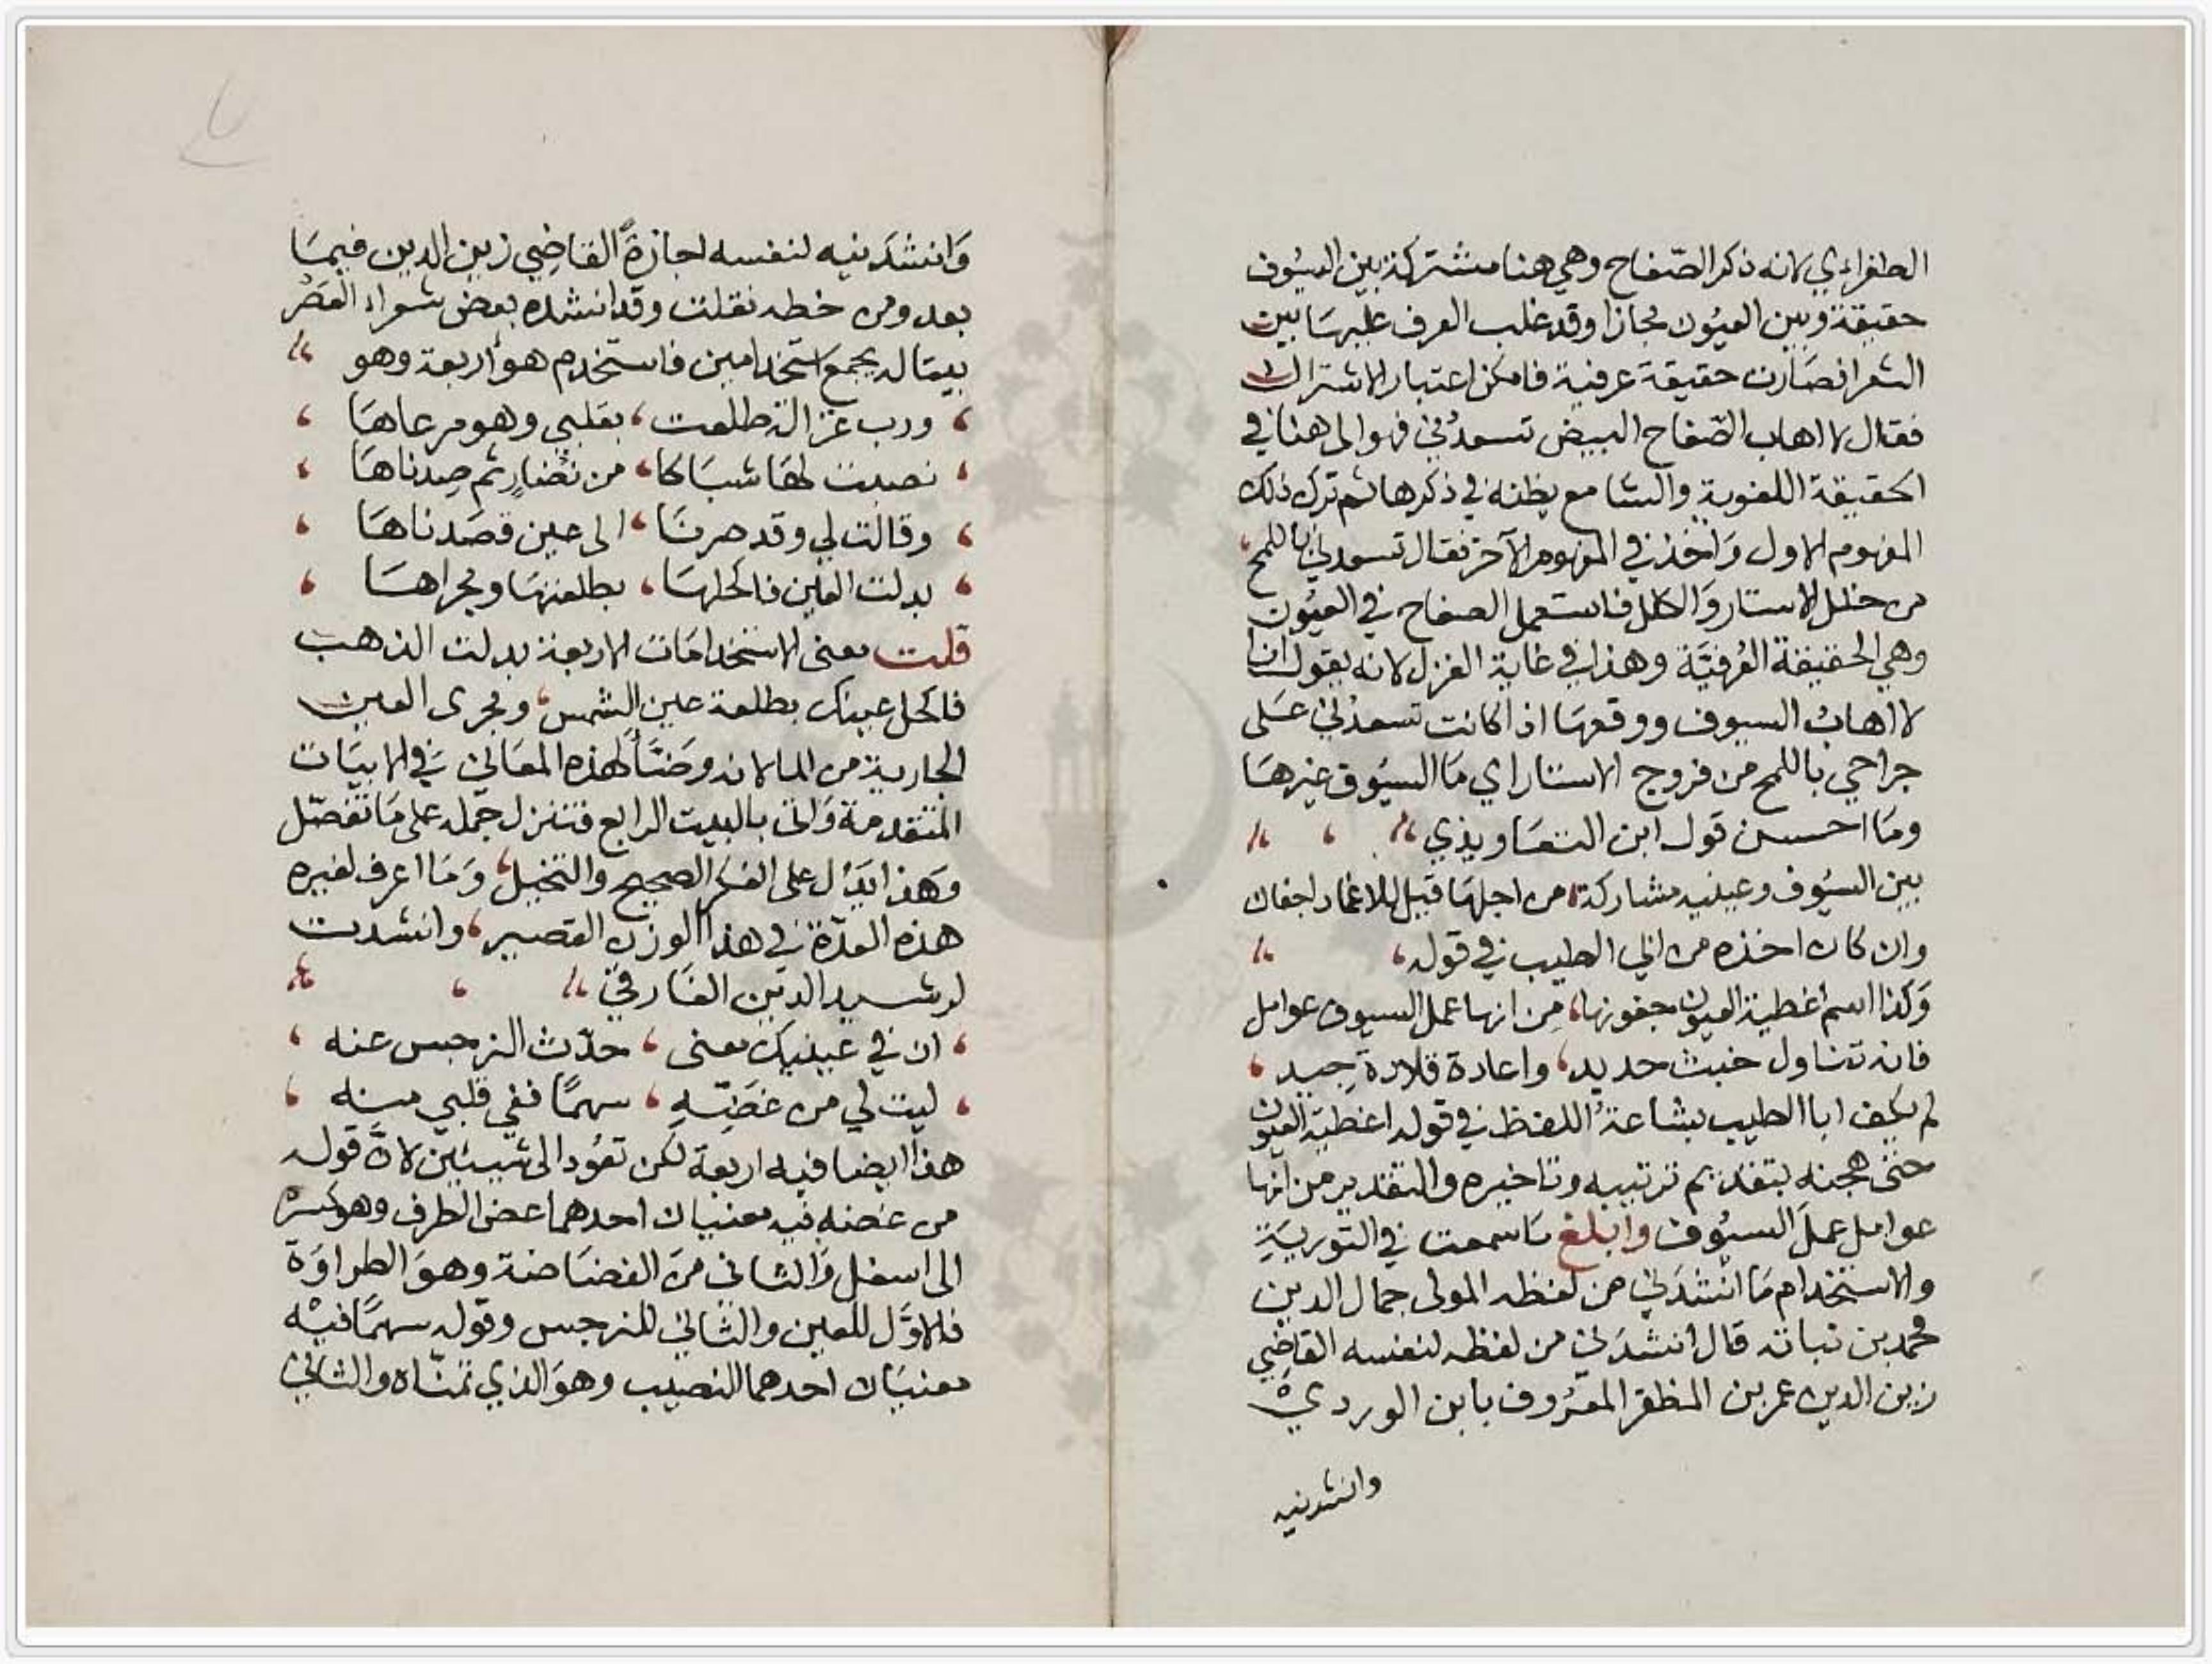 الطغراءي لانه ذكر الصّفاح وهي هنا مشتركة بين السيُوف
حقيقة وبين العيُون مجازا وقد غلب العرف عليهَا بين
الشعرا فصَارت حقيقة عرفية فامكن اعتبار الاشتراك
فقال لا اهاب الصّفاح البيض تسعدُني فهو الى هنا في
الحقيقة اللغوية والسامع يظنه في ذكرها ثم ترك ذلك
المفهوم الاول وَاخذ في المفهوم الآخر فقال تسعدني باللمح
من خلل الاستار وَالكلل فاستعمل الصفاح في العيُون
وهي الحقيقة العُرفيَّة وهذا في غاية الغزل لانه يقول انا
لا اهابُ السيوف ووقعهَا اذا كانت تسعدُني عَلى
جراحي باللمح من فروج الاستار اي مَا السيُوف غيرهَا
ومَا احسن قول ابن التعَاويذي
بين السيُوف وعينيه مشاركة من اجلهَا قيل للاغماد اجفان
وان كان اخذه من ابي الطيب في قوله
وَكذا اسم اغطية العيون جفونها مِن انها عمل السيوف عوامل
فانه تناول خبث حديد واعادة قلادة جِيد
لم يكف ابا الطيب بشاعةُ اللفظ في قوله اغطية العيون
حتى هجنه بتقديم ترتيبه وتاخيره والتقدير من انها
عوامل عملَ السيُوف وابلغ مَا سمعت في التوريَةِ
والاستخدام مَا انشدَني من لفظه المولى جمال الدين
محمد بن نباته قال انشدَني من لفظه لنفسه القاضِي
زين الدين عمر بن المظفر المعرُوف بابن الوردي
وانشدنيه
وَانشدَنيه لنفسه اجازةً القاضِي زين الدين فيمَا
بعد ومن خطه نقلت وقد انشده بعض شعراء العَصْر
بيتا له يجمع استخدامين فاستخدم هو اربعة وهو
ورب غزالة طلعت بقلبي وهو مرعاهَا
نصبت لهَا شبَاكا من نُضارٍ ثم صِدناهَا
وقالت لي وقد صرنَا الى عين قصَدناهَا
بدلت العَين فاكحلهَا بطلعتهَا ومجراهَا
قلت معنى الاستخدامَات الاربعة بدلت الذهب
فاكحل عينك بطلعة عين الشمس ومجرى العين
الجارية من الما لانه وضَّأ لهذه المعَاني في الابيَات
المتقدمة وَاتى بالبيت الرابع فتنزل جمله على مَا تفصّل
وَهذا يَدُل على الفكر الصحيح والتخيل وَمَا اعرف لغيره
هذه العدّة في هذا الوزن القصير وانشدت
لرشيد الدين الفَارقيّ
ان في عينيك معنى حدّث النرجس عنه
ليت لي من غضّهِ سهمًا ففي قلبي منه
هذا ايضا فيه اربعة لكن تعُود الى شيئين لانّ قوله
من غضه فيه معنيان احدهما غض الطرف وهو كسْره
الى اسفل وَالثانى منَ الغضَاضة وهوَ الطراوَة
فالاوَّل للعين والثاني للنرجس وقوله سهمًا فيْه
معنيَان احدهما النصيب وهوَ الذي تمنّاه والثاني